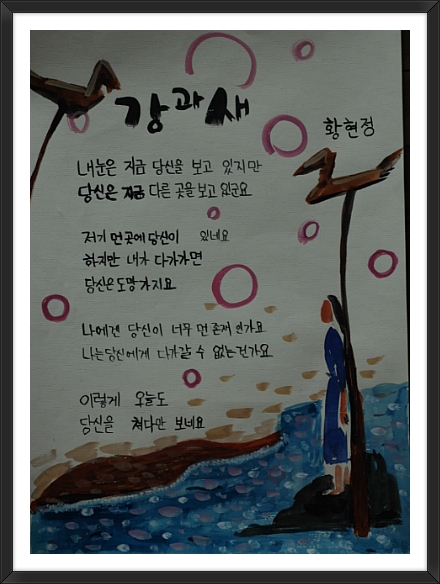 강과새
황현정
내눈은 지금 당신을 보고 있지만
당신은 지금 다른 곳을 보고 있군요
저기 먼곳에 당신이 있네요
하지만 내가 다가가면
당신은 도망가지요
나에겐 당신이 너무 먼 존재 인가요
나는 당신에게 다가갈 수 없는건가요
이렇게 오늘도
당신을 쳐다만 보네요